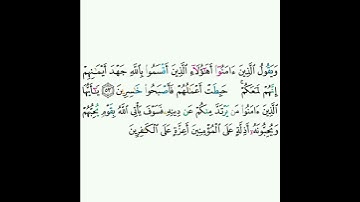 وَيَقُولُ ٱلَّذِينَ ءَامَنُوٓا۟ أَهَـٰٓؤُلَآءِ ٱلَّذِينَ أَقْسَمُوا۟ بِٱللَّهِ جَهْدَ أَيْمَـٰنِهِمْ
إِنَّهُمْ لَمَعَكُمْ ۚ حَبِطَتْ أَعْمَـٰلُهُمْ فَأَصْبَحُوا۟ خَـٰسِرِينَ ﴿٥٣﴾ يَـٰٓأَيُّهَا
ٱلَّذِينَ ءَامَنُوا۟ مَن يَرْتَدَّ مِنكُمْ عَن دِينِهِۦ فَسَوْفَ يَأْتِى ٱللَّهُ بِقَوْمٍ يُحِبُّهُمْ
وَيُحِبُّونَهُۥٓ أَذِلَّةٍ عَلَى ٱلْمُؤْمِنِينَ أَعِزَّةٍ عَلَى ٱلْكَـٰفِرِينَ